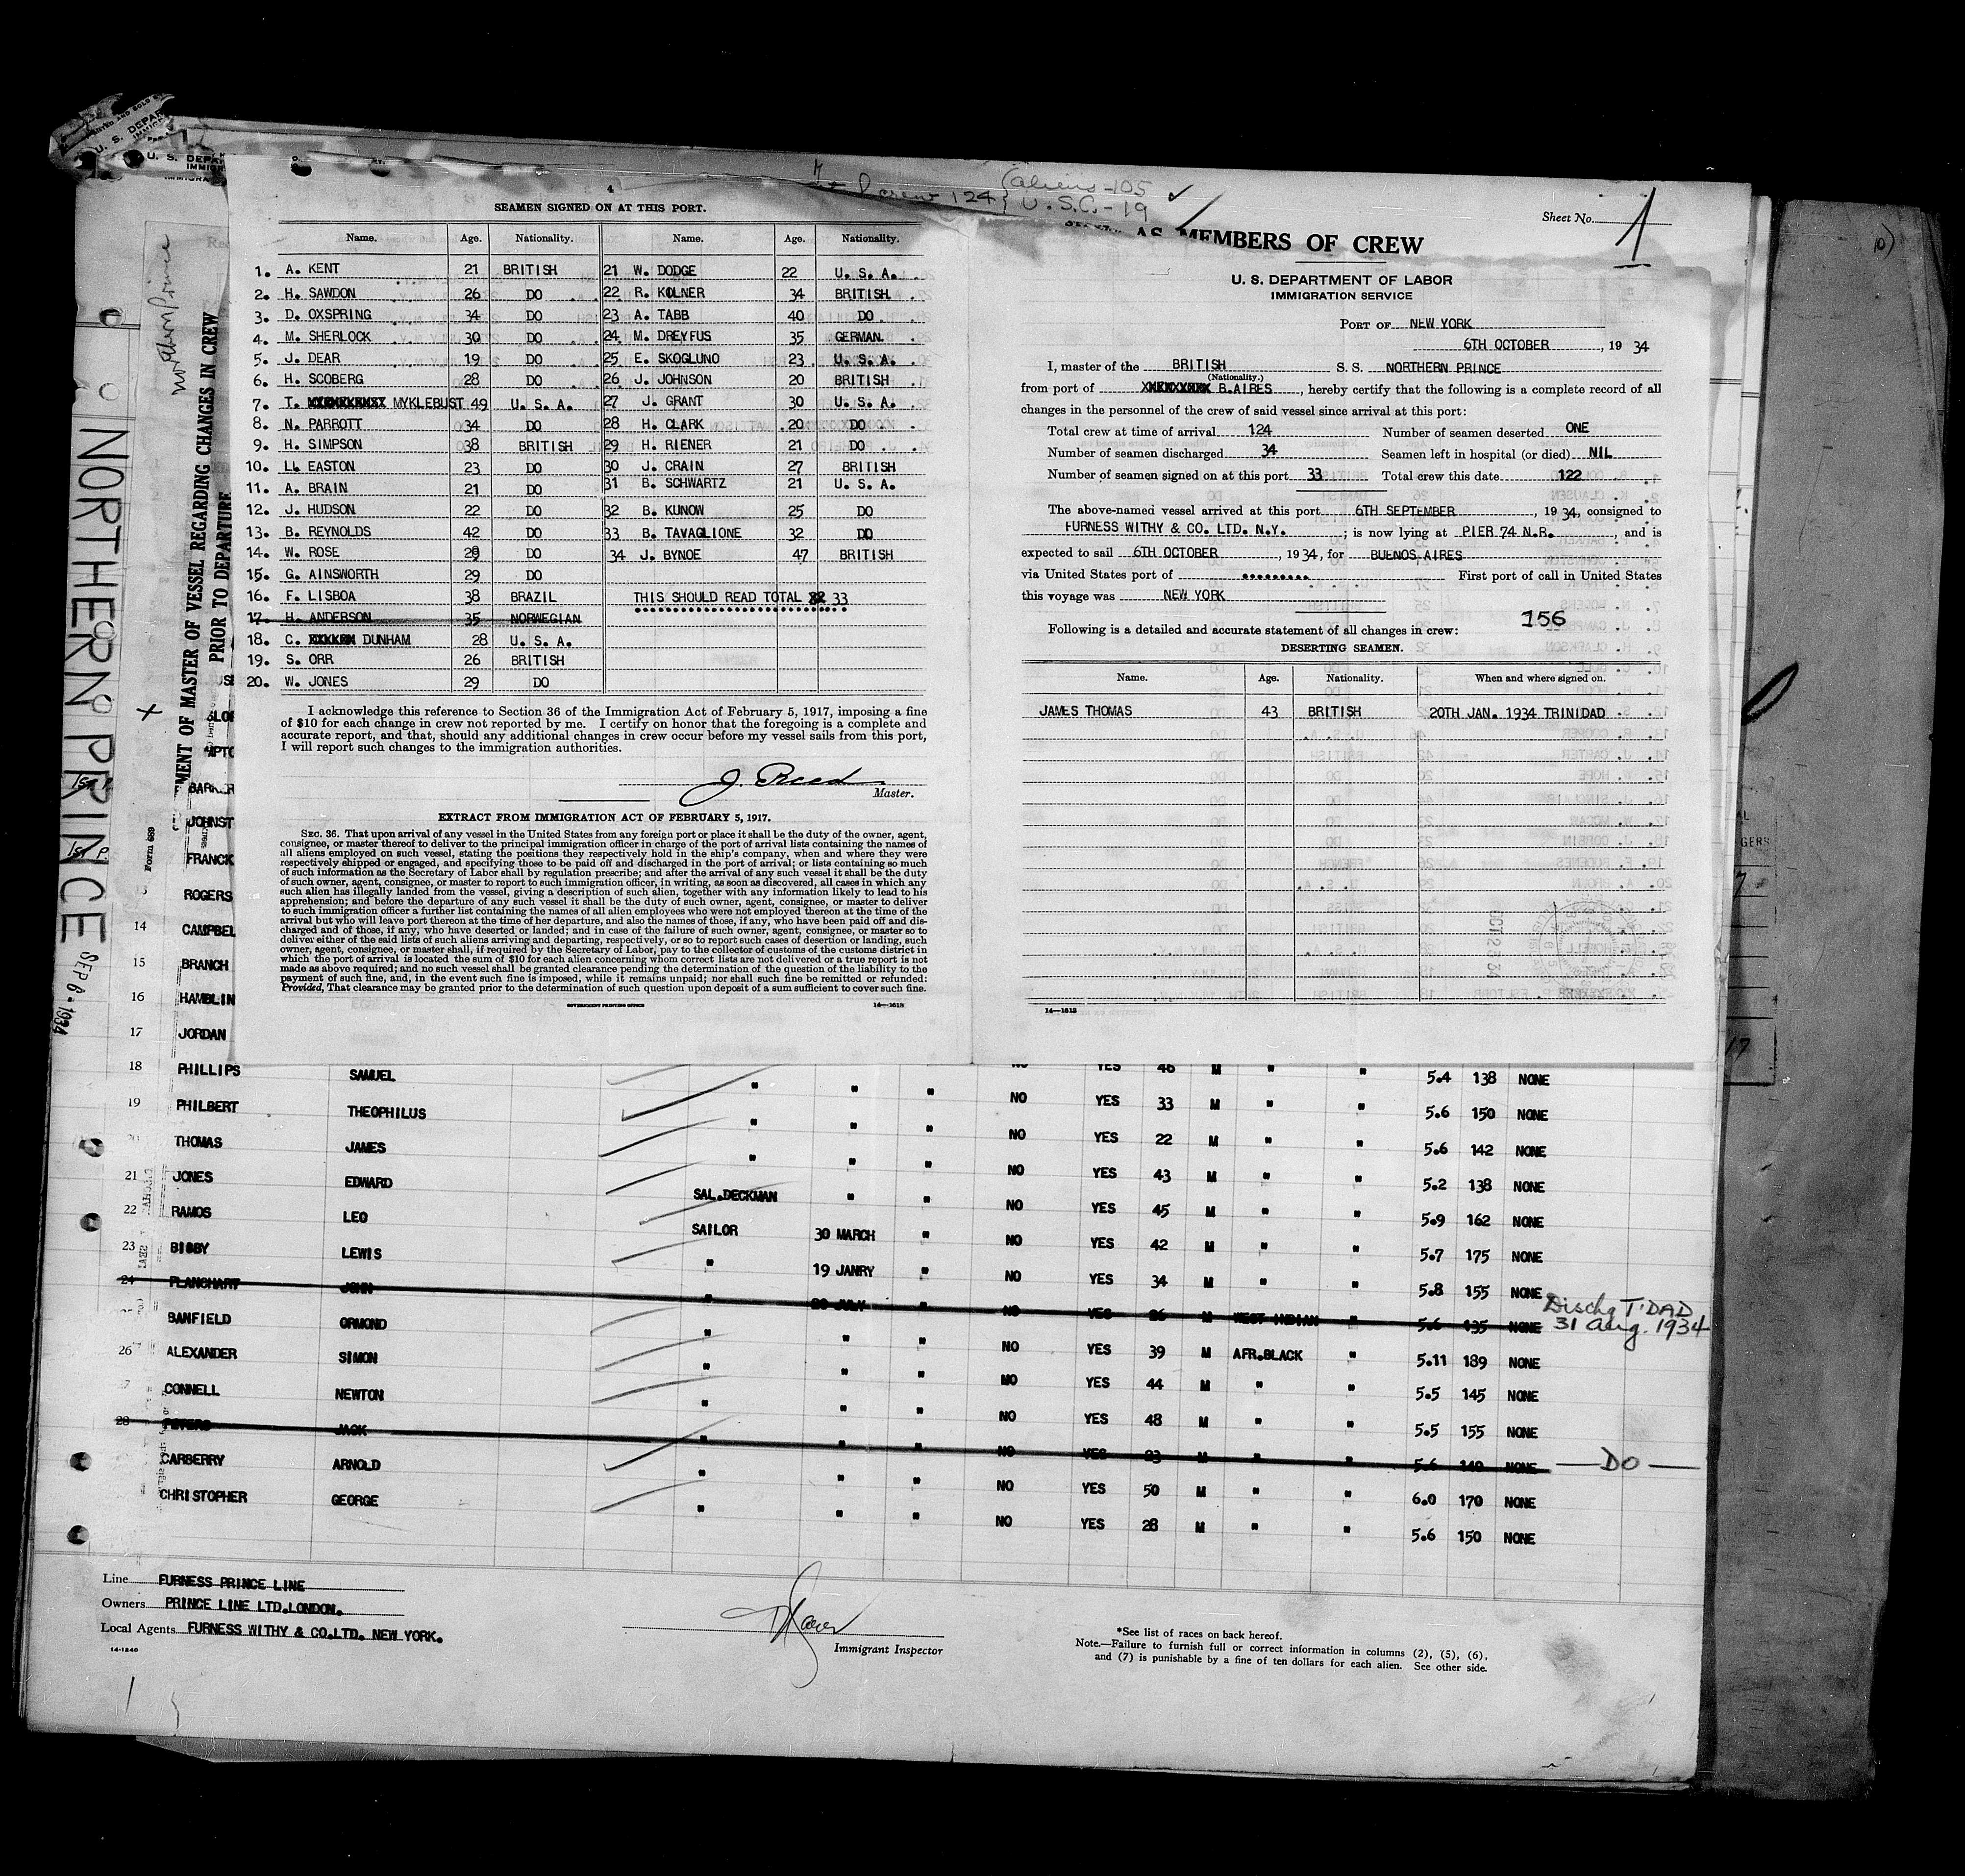 U. S. DEPAR
U. S. DEPAR
IMMIGR
crew 124 { aliens - 105
U. S. C. - 19
4
SEAMEN SIGNED ON AT THIS PORT.
Name. Age. Nationality. Name. Age. Nationality.
1. A. KENT 21 BRITISH 21 W. DODGE 22 U. S. A.
2. H. SAWDON 26 DO 22 R. KOLNER 34 BRITISH
3. D. OXSPRING 34 DO 23 A. TABB 40 DO
4. M. SHERLOCK 30 DO 24 M. DREYFUS 35 GERMAN
5. J. DEAR 19 DO 25 E. SKOGLUNO 23 U. S. A.
6. H. SCOBERG 28 DO 26 J. JOHNSON 20 BRITISH
7. T. MYKLEBUST 49 U. S. A. 27 J. GRANT 30 U. S. A.
8. N. PARROTT 34 DO 28 H. CLARK 20 DO
9. H. SIMPSON 38 BRITISH 29 H. RIENER 21 DO
10. LL EASTON 23 DO 30 J. CRAIN 27 BRITISH
11. A. BRAIN 21 DO 31 B. SCHWARTZ 21 U. S. A.
12. J. HUDSON 22 DO 32 B. KUNOW 25 DO
13. B. REYNOLDS 42 DO 33 B. TAVAGLIONE 32 DO
14. W. ROSE 29 DO 34 J. BYNOE 47 BRITISH
15. G. AINSWORTH 29 DO
16. F. LISBOA 38 BRAZIL THIS SHOULD READ TOTAL 33
17. H. ANDERSON 35 NORWEGIAN
18. C. DUNHAM 28 U. S. A.
19. S. ORR 26 BRITISH
20. W. JONES 29 DO
I acknowledge this reference to Section 36 of the Immigration Act of February 5, 1917, imposing a fine
of $10 for each change in crew not reported by me. I certify on honor that the foregoing is a complete and
accurate report, and that, should any additional changes in crew occur before my vessel sails from this port,
I will report such changes to the immigration authorities.
J. Reed
Master.
EXTRACT FROM IMMIGRATION ACT OF FEBRUARY 5, 1917.
SEC. 36. That upon arrival of any vessel in the United States from any foreign port or place it shall be the duty of the owner, agent,
consignee, or master thereof to deliver to the principal immigration officer in charge of the port of arrival lists containing the names of
all aliens employed on such vessel, stating the positions they respectively hold in the ship's company, when and where they were
respectively shipped or engaged, and specifying those to be paid off and discharged in the port of arrival; or lists containing so much
of such information as the Secretary of Labor shall by regulation prescribe; and after the arrival of any such vessel it shall be the duty
of such owner, agent, consignee, or master to report to such immigration officer, in writing, as soon as discovered, all cases in which any
such alien has illegally landed from the vessel, giving a description of such alien, together with any information likely to lead to his
apprehension; and before the departure of any such vessel it shall be the duty of such owner, agent, consignee, or master to deliver
to such immigration officer a further list containing the names of all alien employees who were not employed thereon at the time of the
arrival but who will leave port thereon at the time of her departure, and also the names of those, if any, who have been paid off and dis-
charged and of those, if any, who have deserted or landed; and in case of the failure of such owner, agent, consignee, or master so to
deliver either of the said lists of such aliens arriving and departing, respectively, or so to report such cases of desertion or landing, such
owner, agent, consignee, or master shall, if required by the Secretary of Labor, pay to the collector of customs of the customs district in
which the port of arrival is located the sum of $10 for each alien concerning whom correct lists are not delivered or a true report is not
made as above required; and no such vessel shall be granted clearance pending the determination of the question of the liability to the
payment of such fine, and, in the event such fine is imposed, while it remains unpaid; nor shall such fine be remitted or refunded:
Provided, That clearance may be granted prior to the determination of such question upon deposit of a sum sufficient to cover such fine.
GOVERNMENT PRINTING OFFICE 14—1613
Sheet No. 1
AS MEMBERS OF CREW
U. S. DEPARTMENT OF LABOR
IMMIGRATION SERVICE
PORT OF NEW YORK
6TH OCTOBER, 19 34
I, master of the BRITISH S. S. NORTHERN PRINCE
(Nationality.)
from port of B.AIRES, hereby certify that the following is a complete record of all
changes in the personnel of the crew of said vessel since arrival at this port:
Total crew at time of arrival 124 Number of seamen deserted ONE
Number of seamen discharged 34 Seamen left in hospital (or died) NIL
Number of seamen signed on at this port 33 Total crew this date 122
The above-named vessel arrived at this port 6TH SEPTEMBER, 19 34, consigned to
FURNESS WITHY & CO. LTD. N.Y.; is now lying at PIER 74 N.R., and is
expected to sail 6TH OCTOBER, 19 34, for BUENOS AIRES
via United States port of ......... First port of call in United States
this voyage was NEW YORK
156
Following is a detailed and accurate statement of all changes in crew:
DESERTING SEAMEN.
Name. Age. Nationality. When and where signed on.
JAMES THOMAS 43 BRITISH 20TH JAN. 1934 TRINIDAD
14—1613
NORTHERN PRINCE SEP 6 - 1934
Northern Prince
MENT OF MASTER OF VESSEL REGARDING CHANGES IN CREW
PRIOR TO DEPARTURE
Form 689
BARKER
JOHNST
FRANCK
ROGERS
14 CAMPBEL
15 BRANCH
16 HAMBLIN
17 JORDAN
18 PHILLIPS SAMUEL " " " NO YES 46 M " " 5.4 138 NONE
19 PHILBERT THEOPHILUS " " " NO YES 33 M " " 5.6 150 NONE
20 THOMAS JAMES " " " NO YES 22 M " " 5.6 142 NONE
21 JONES EDWARD SAL.DECKMAN " " NO YES 43 M " " 5.2 138 NONE
22 RAMOS LEO SAILOR 30 MARCH " NO YES 45 M " " 5.9 162 NONE
23 BIBBY LEWIS " 19 JANRY " NO YES 42 M " " 5.7 175 NONE
24 PLANCHART JOHN " 20 JULY " NO YES 34 M " " 5.8 155 NONE
BANFIELD ORMOND " " " NO YES 26 M WEST INDIAN " 5.6 135 NONE Dischg T'DAD
31 Aug. 1934
26 ALEXANDER SIMON " " " NO YES 39 M AFR.BLACK " 5.11 189 NONE
CONNELL NEWTON " " " NO YES 44 M " " 5.5 145 NONE
28 PETERS JACK " " " NO YES 48 M " " 5.5 155 NONE
CARBERRY ARNOLD " " " NO YES 23 M " " 5.6 140 NONE — DO —
CHRISTOPHER GEORGE " " " NO YES 50 M " " 6.0 170 NONE
NO YES 28 M " " 5.6 150 NONE
Line FURNESS PRINCE LINE
Owners PRINCE LINE LTD.LONDON.
Local Agents FURNESS WITHY & CO.LTD. NEW YORK.
14-1240
Immigrant Inspector
*See list of races on back hereof.
Note.—Failure to furnish full or correct information in columns (2), (5), (6),
and (7) is punishable by a fine of ten dollars for each alien. See other side.